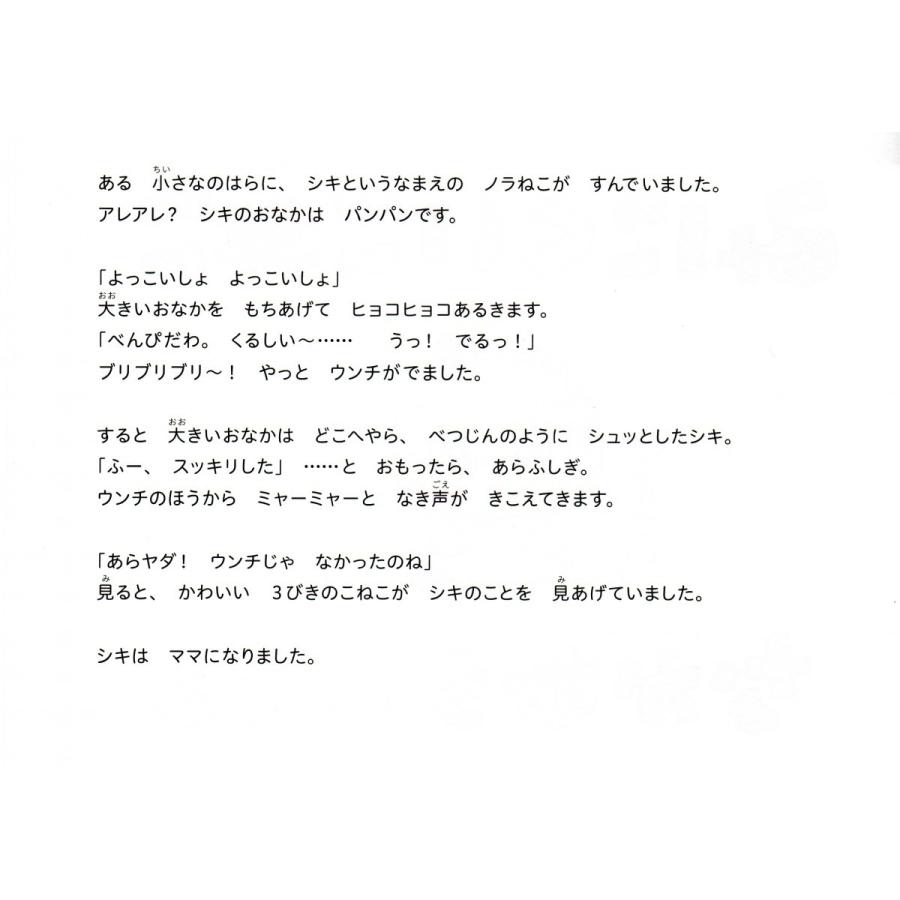 ある　小さなのはらに、　シキというなまえの　ノラねこが　すんでいました。
アレアレ？　シキのおなかは　パンパンです。
「よっこいしょ　よっこいしょ」
大きいおなかを　もちあげて　ヒョコヒョコあるきます。
「べんぴだわ。　くるしい〜……　うっ！　でるっ！」
ブリブリブリ〜！　やっと　ウンチがでました。
すると　大きいおなかは　どこへやら、　べつじんのように　シュッとしたシキ。
「ふー、　スッキリした」　……と　おもったら、　あらふしぎ。
ウンチのほうから　ミャーミャーと　なき声が　きこえてきます。
「あらヤダ！　ウンチじゃ　なかったのね」
見ると、　かわいい　３びきのこねこが　シキのことを　見あげていました。
シキは　ママになりました。